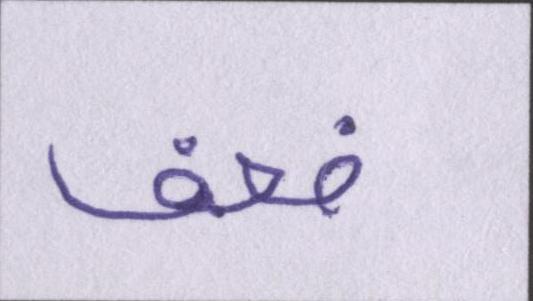 ضعف